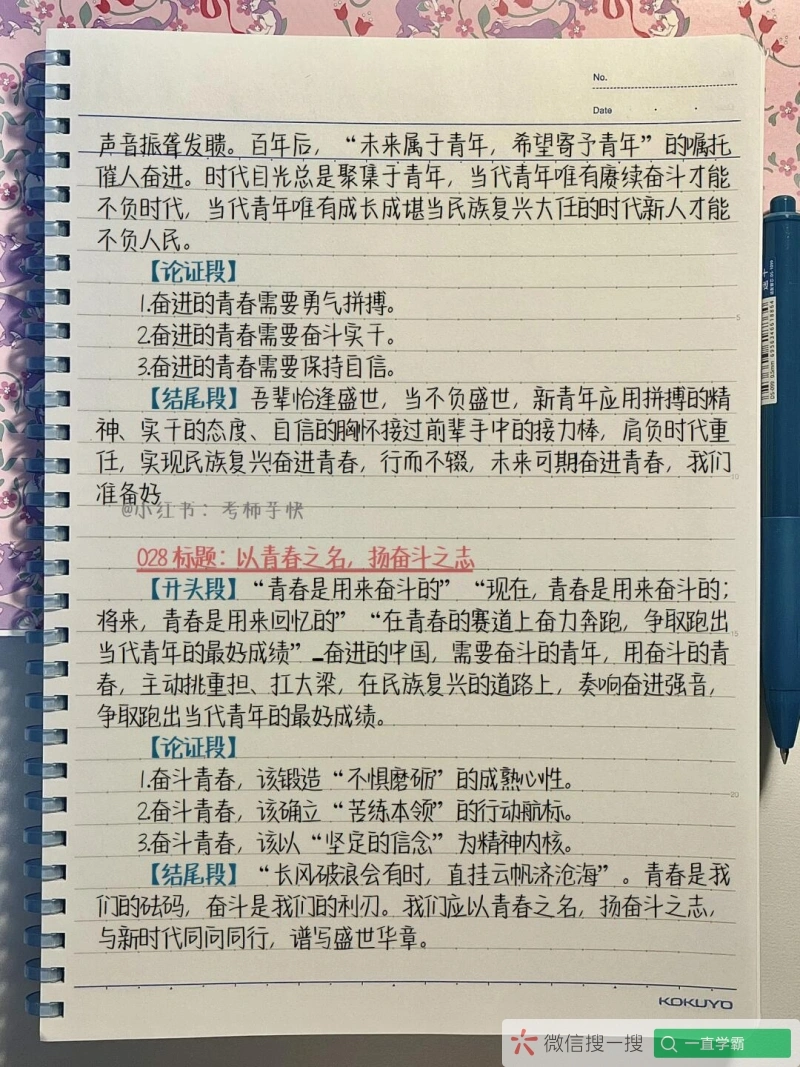 No.
Date
声音振聋发聩。百年后，“未来属于青年，希望寄予青年”的嘱托
催人奋进。时代目光总是聚集于青年，当代青年唯有赓续奋斗才能
不负时代，当代青年唯有成长成堪当民族复兴大任的时代新人才能
不负人民。
【论证段】
1.奋进的青春需要勇气拼搏。
2.奋进的青春需要奋斗实干。
3.奋进的青春需要保持自信。
【结尾段】吾辈恰逢盛世，当不负盛世，新青年应用拼搏的精
神、实干的态度、自信的胸怀接过前辈手中的接力棒，肩负时代重
任，实现民族复兴奋进青春，行而不辍，未来可期奋进青春，我们
准备好
@小红书：考师予快
028标题：以青春之名，扬奋斗之志
【开头段】“青春是用来奋斗的”“现在，青春是用来奋斗的；
将来，青春是用来回忆的”“在青春的赛道上奋力奔跑，争取跑出
当代青年的最好成绩”_奋进的中国，需要奋斗的青年，用奋斗的青
春，主动挑重担、扛大梁，在民族复兴的道路上，奏响奋进强音，
争取跑出当代青年的最好成绩。
【论证段】
1.奋斗青春，该锻造“不惧磨砺”的成熟心性。
2.奋斗青春，该确立“苦练本领”的行动航标。
3.奋斗青春，该以“坚定的信念”为精神内核。
【结尾段】“长风破浪会有时，直挂云帆济沧海”。青春是我
们的砝码，奋斗是我们的利刃。我们应以青春之名，扬奋斗之志，
与新时代同向同行，谱写盛世华章。
KOKUYO
微信搜一搜
一直学霸